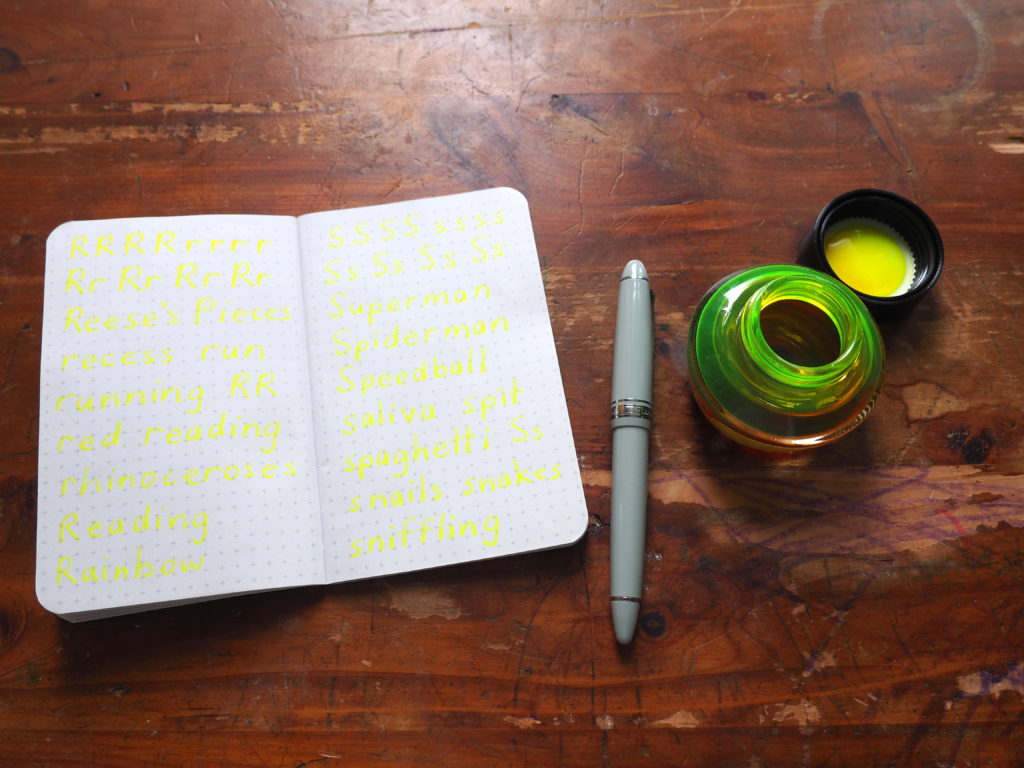 RRRRrrrr
Rr Rr Rr Rr
Reese's Pieces
recess run
running RR
red reading
rhinoceroses
Reading
Rainbow
SSSSssss
Ss Ss Ss Ss
Superman
Spiderman
Speedball
saliva spit
spaghetti Ss
snails snakes
sniffling